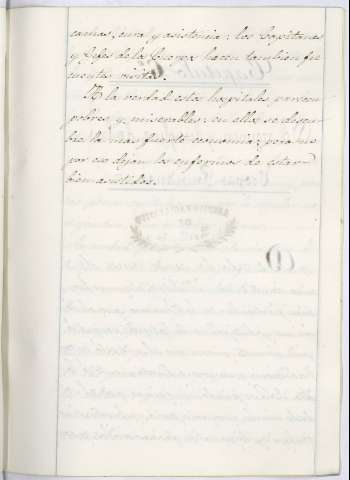 camas, cura y asistencia: los Capitanes
y Gefes de los Cuerpos hacen tambien fre
cuentes visitas.
A la verdad estos hospitales parecen
pobres y miserables: en ellos se descu-
bre la mas fuerte economia; pero no
por eso dejan los enfermos de estar
bien asistidos.